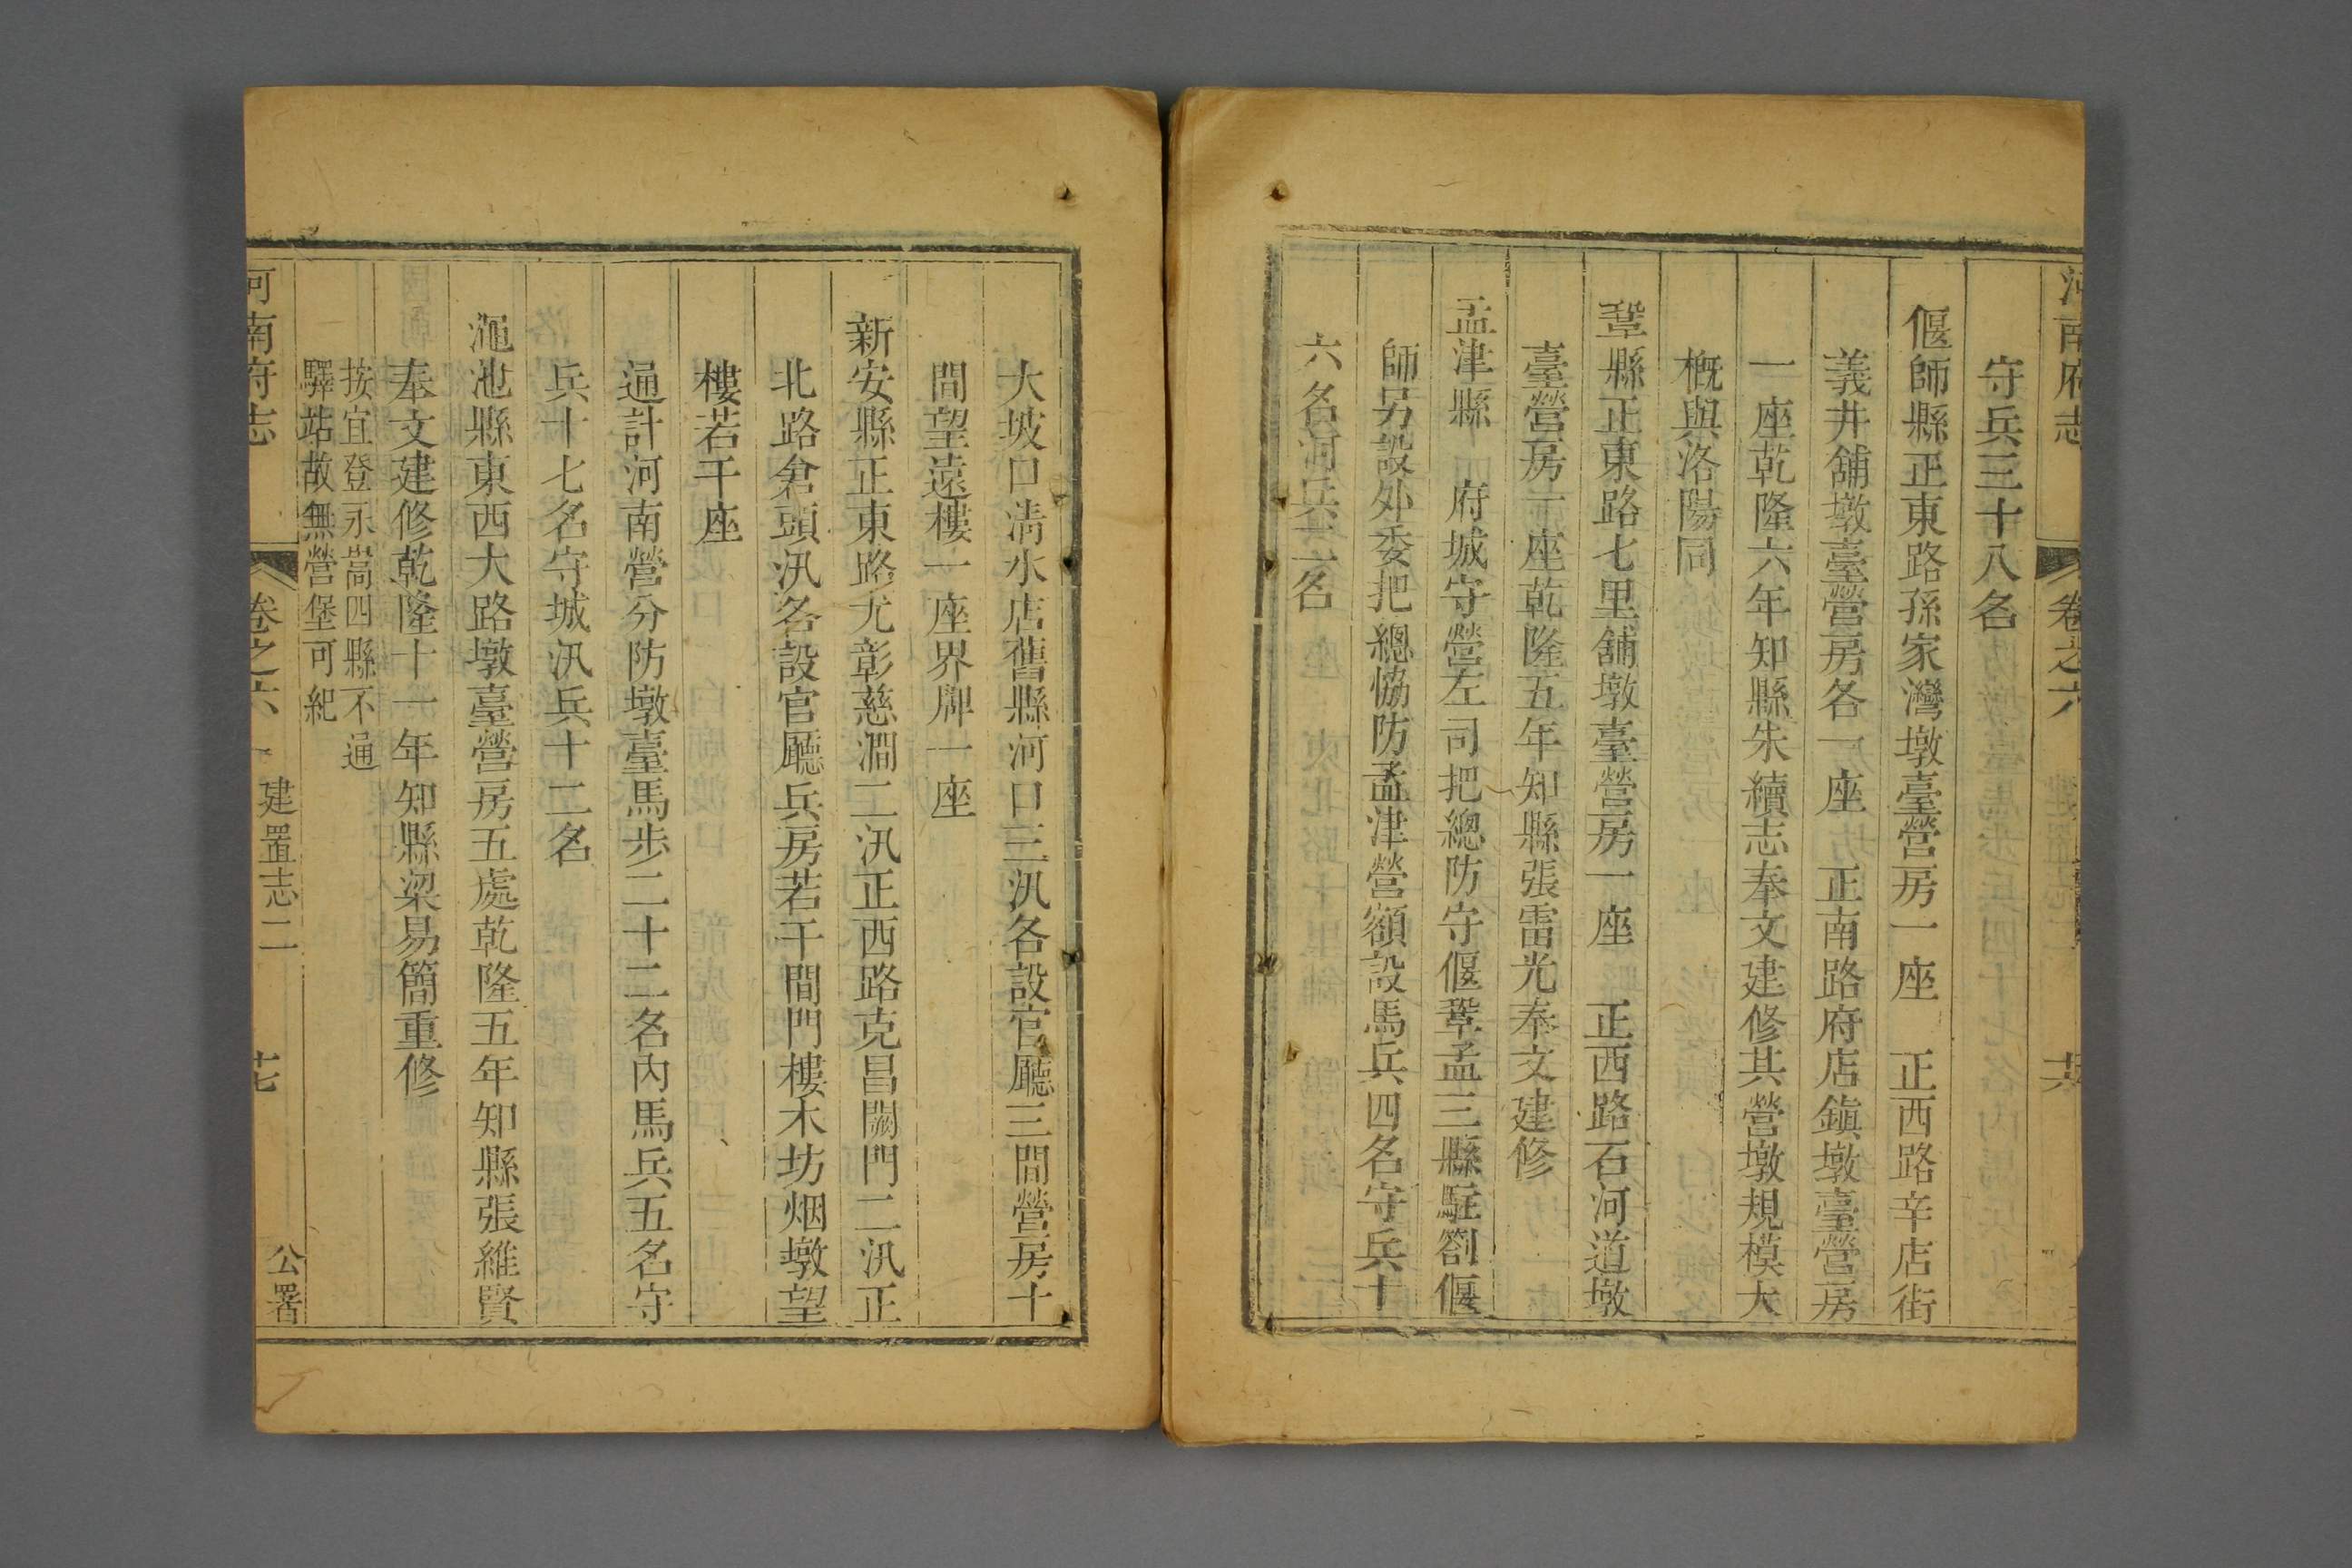 河南府志 卷之六
守兵三十八名
偃師縣正東路孫家灣墩臺營房一座 正西路辛店街
義井舖墩臺營房各一座 正南路府店鎮墩臺營房
一座乾隆六年知縣朱續志奉文建修其營墩規模大
槪與洛陽同
鞏縣正東路七里舖墩臺營房一座 正西路石河道墩
臺營房一座乾隆五年知縣張雷光奉文建修
孟津縣 府城守營左司把總防守偃鞏孟三縣駐劄偃
師另設外委把總恊防孟津營額設馬兵四名守兵十
六名河兵二名
大坡口淸水店舊縣河口三汛各設官廳三間營房十
間望遠樓一座界牌一座
新安縣正東路尤彰慈澗二汛正西路克昌闕門二汛正
北路倉頭汛各設官廳兵房若干間門樓木坊烟墩望
樓若干座
通計河南營分防墩臺馬步二十二名內馬兵五名守
兵十七名守城汛兵十二名
澠池縣東西大路墩臺營房五處乾隆五年知縣張維賢
奉文建修乾隆十一年知縣梁易簡重修
按宜登永嵩四縣不通
驛站故無營堡可紀
河南府志 卷之六 建置志二 公署